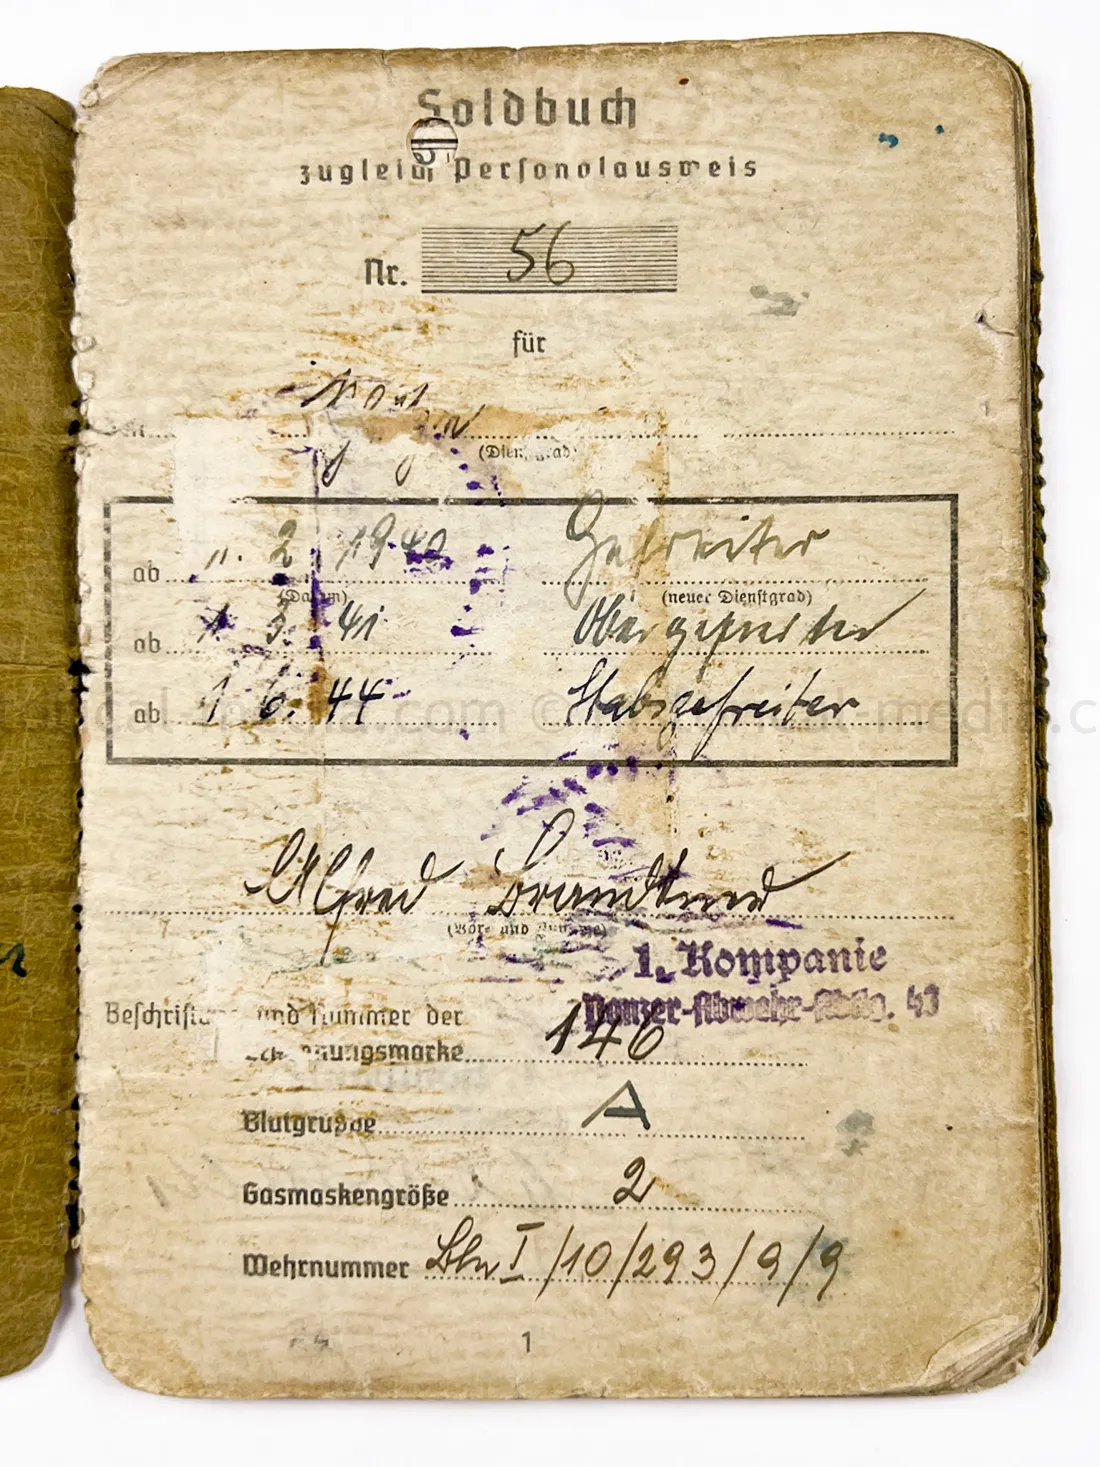 Soldbuch
zugleich Personalausweis
Nr. 56
für
(Dienstgrad)
ab 1. 2 1940 Gefreiter
(Datum) (neuer Dienstgrad)
ab 1 3. 41 Obergefreiter
ab 1 6. 44 Stabsgefreiter
Alfred
(Vor- und Zuname)
1. Kompanie
Panzer-Abwehr-Abtlg. 43
Beschriftung und Nummer der
Erkennungsmarke 146
Blutgruppe A
Gasmaskengröße 2
Wehrnummer Bln I/10/293/9/9
1